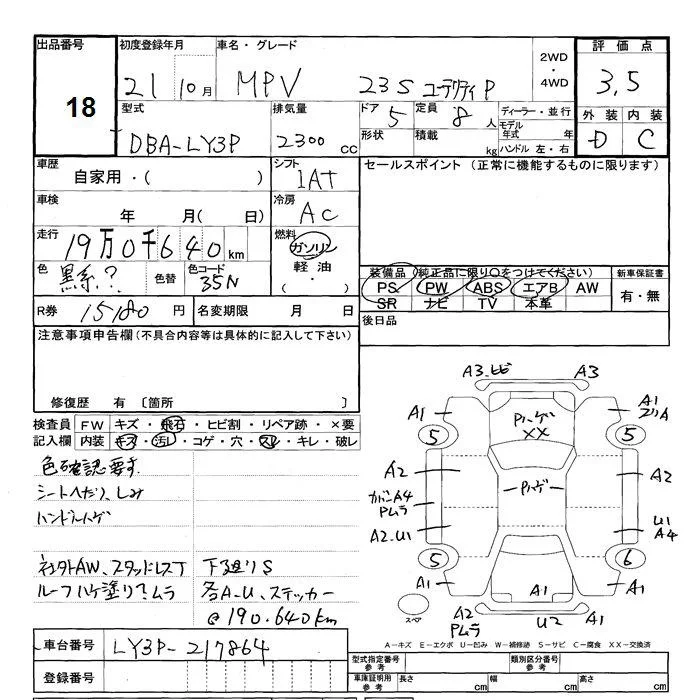 出品番号 初度登録年月 車名・グレード 2WD・4WD 評価点
18 21 10月 MPV 23S ユーテリティP 3.5
型式 排気量 ドア 5 定員 8人 ディーラー・並行 外装 内装
DBA-LY3P 2300cc 形状 積載 kg モデル年式 年 ハンドル 左・右 D C
車歴 シフト セールスポイント (正常に機能するものに限ります)
自家用・( ) IAT
車検 冷房
年 月( 日) AC
走行 燃料
19万0千640km ガソリン
色 色替 色コード 軽油・
黒系? 35N ・
装備品(純正品に限り○をつけてください) 新車保証書
PS PW ABS エアB AW 有・無
SR ナビ TV 本革
R券 15180円 名変期限 月 日 後日品
注意事項申告欄(不具合内容等は具体的に記入して下さい)
修復歴 有 〔箇所 〕
検査員 FW キズ・飛石・ヒビ割・リペア跡・×要
記入欄 内装 キズ・汚レ・コゲ・穴・スレ・キレ・破レ
色確認要す
シートへたり、しみ
ハンドルハゲ
社外AW、スタッドレスT 下廻りS
ルーフハケ塗り?ムラ 各A-U、ステッカー
@190.640km
A3.ヒビ A3
A1 PハゲXX A1
5 5
A2 Pハゲ A2
カバンA4
Pムラ
A2.U1 U1
A4
5 6
A1 A1 A1
スペア A2
Pムラ U2
A-キズ E-エクボ U-凹み W-補修跡 S-サビ C-腐食 XX-交換済
車台番号 LY3P-217864
登録番号
型式指定番号 参考 類別区分番号 参考
車庫証明用 参考 長さ cm 幅 cm 高さ cm